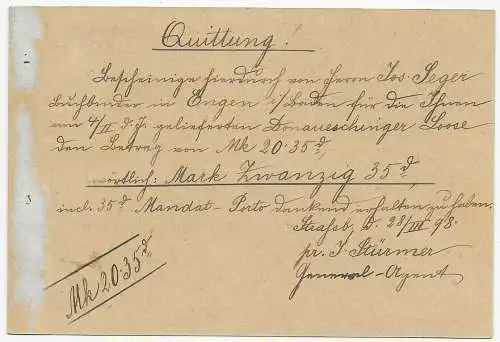 Quittung!
Bescheinige hierdurch von Herrn Jos. Seger
Buchbinder in Engen i/Baden für die Ihnen
am 4/II d. J. gelieferten Donaueschinger Loose
den Betrag von Mk 20.35 ₰,
wörtlich: Mark Zwanzig 35 ₰,
incl. 35 ₰ Mandat-Porto dankend erhalten zu haben.
Strafsb, d. 28/III 98.
pr. J. Stürmer
General-Agent
Mk 20.35 ₰